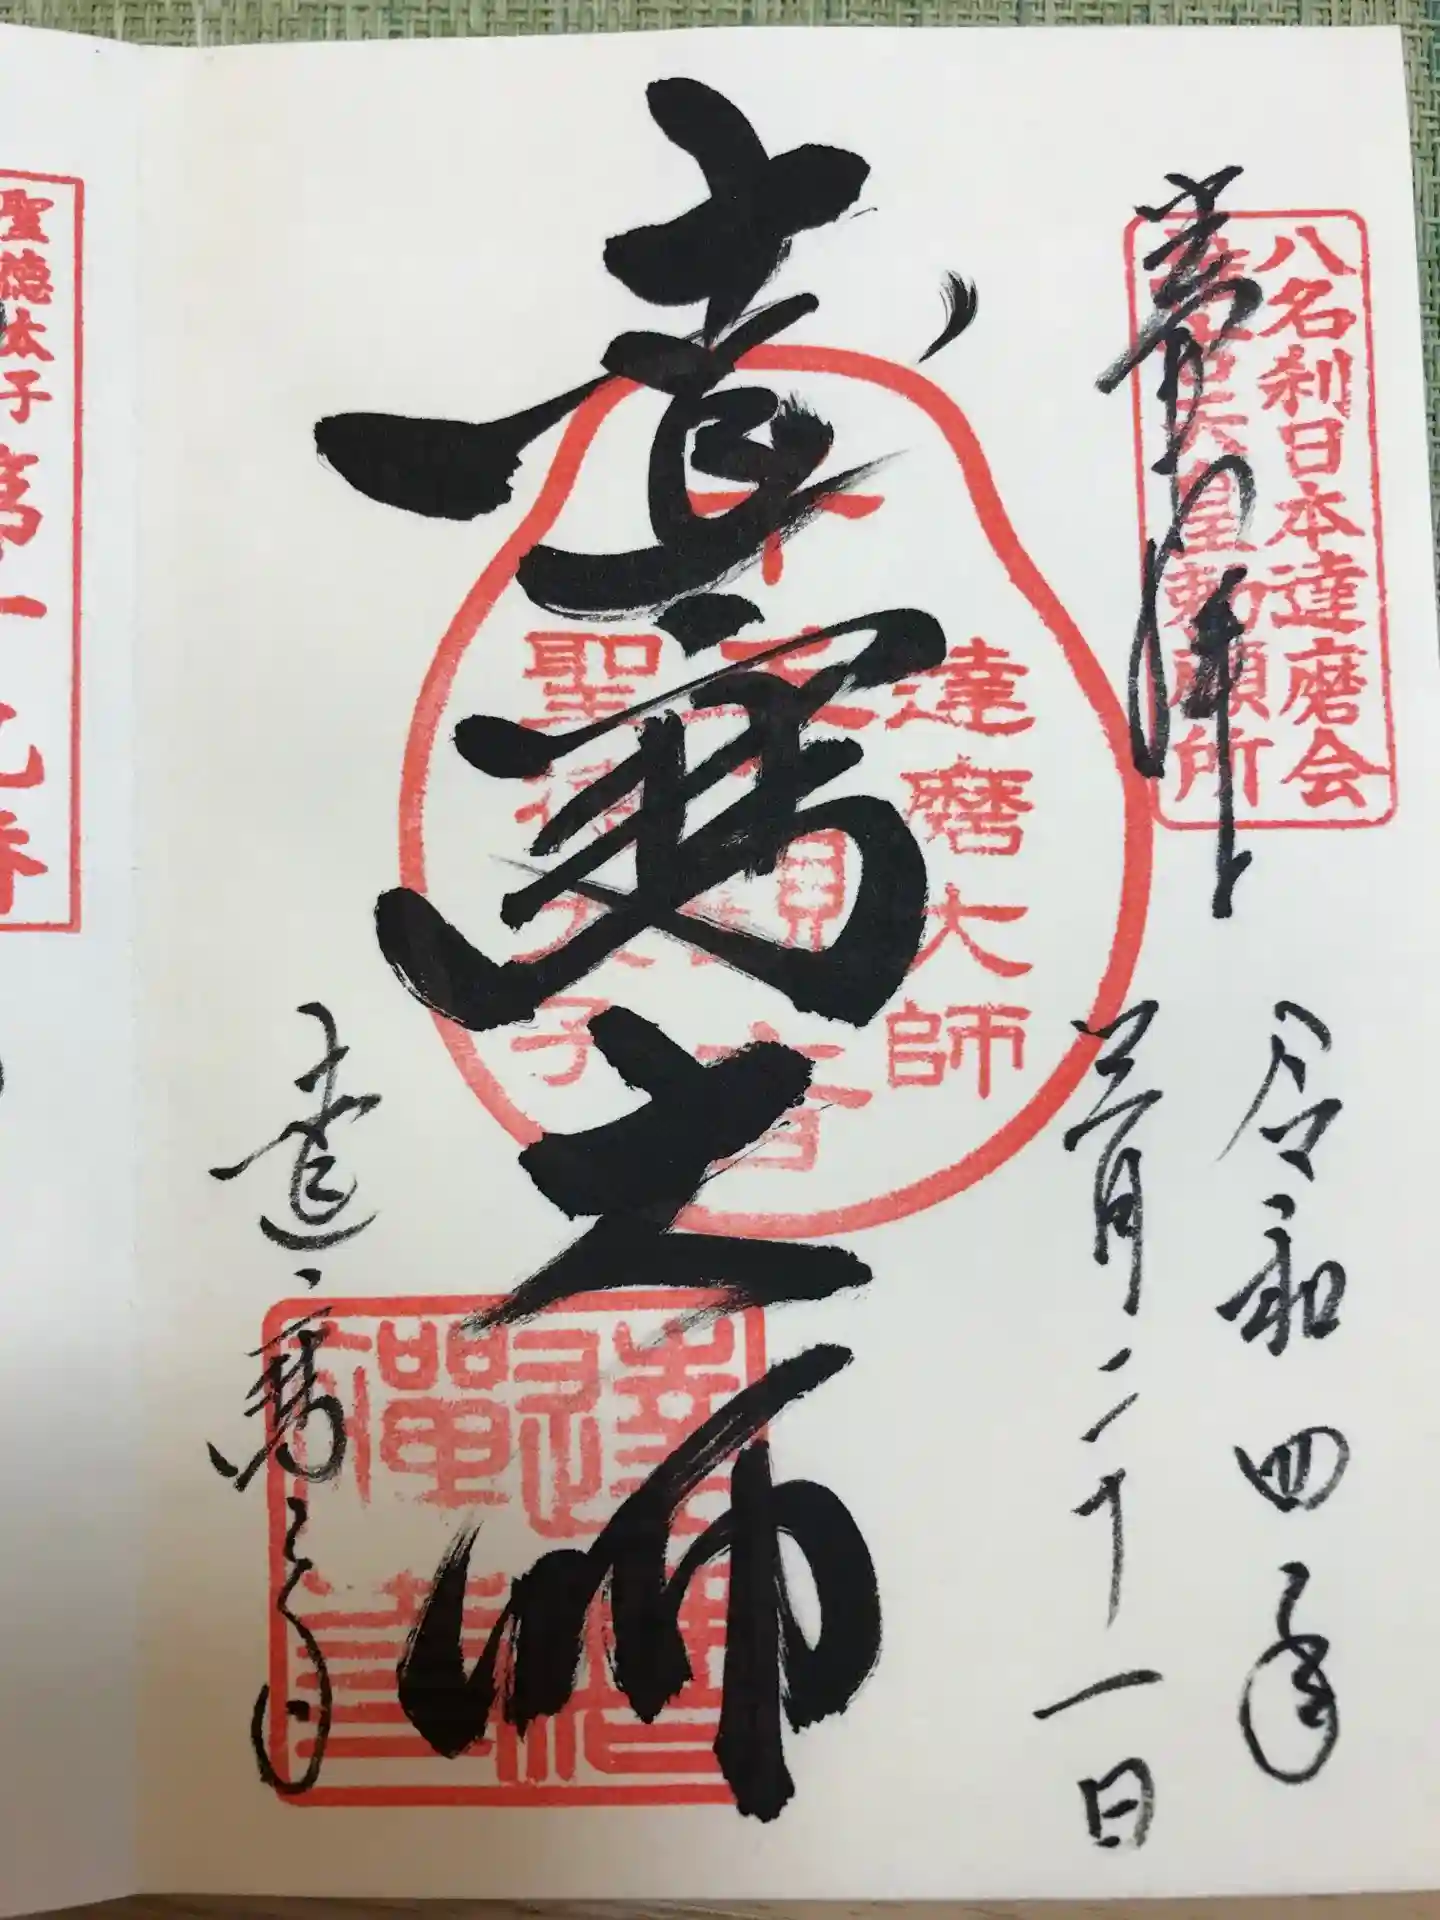 奉拝
八名刹日本達磨会
天皇勅願所
令和四年
三月二十一日
達磨大師
達磨大師
千手観音
聖徳太子
達磨寺
達磨禅寺
聖徳太子
第
一
番